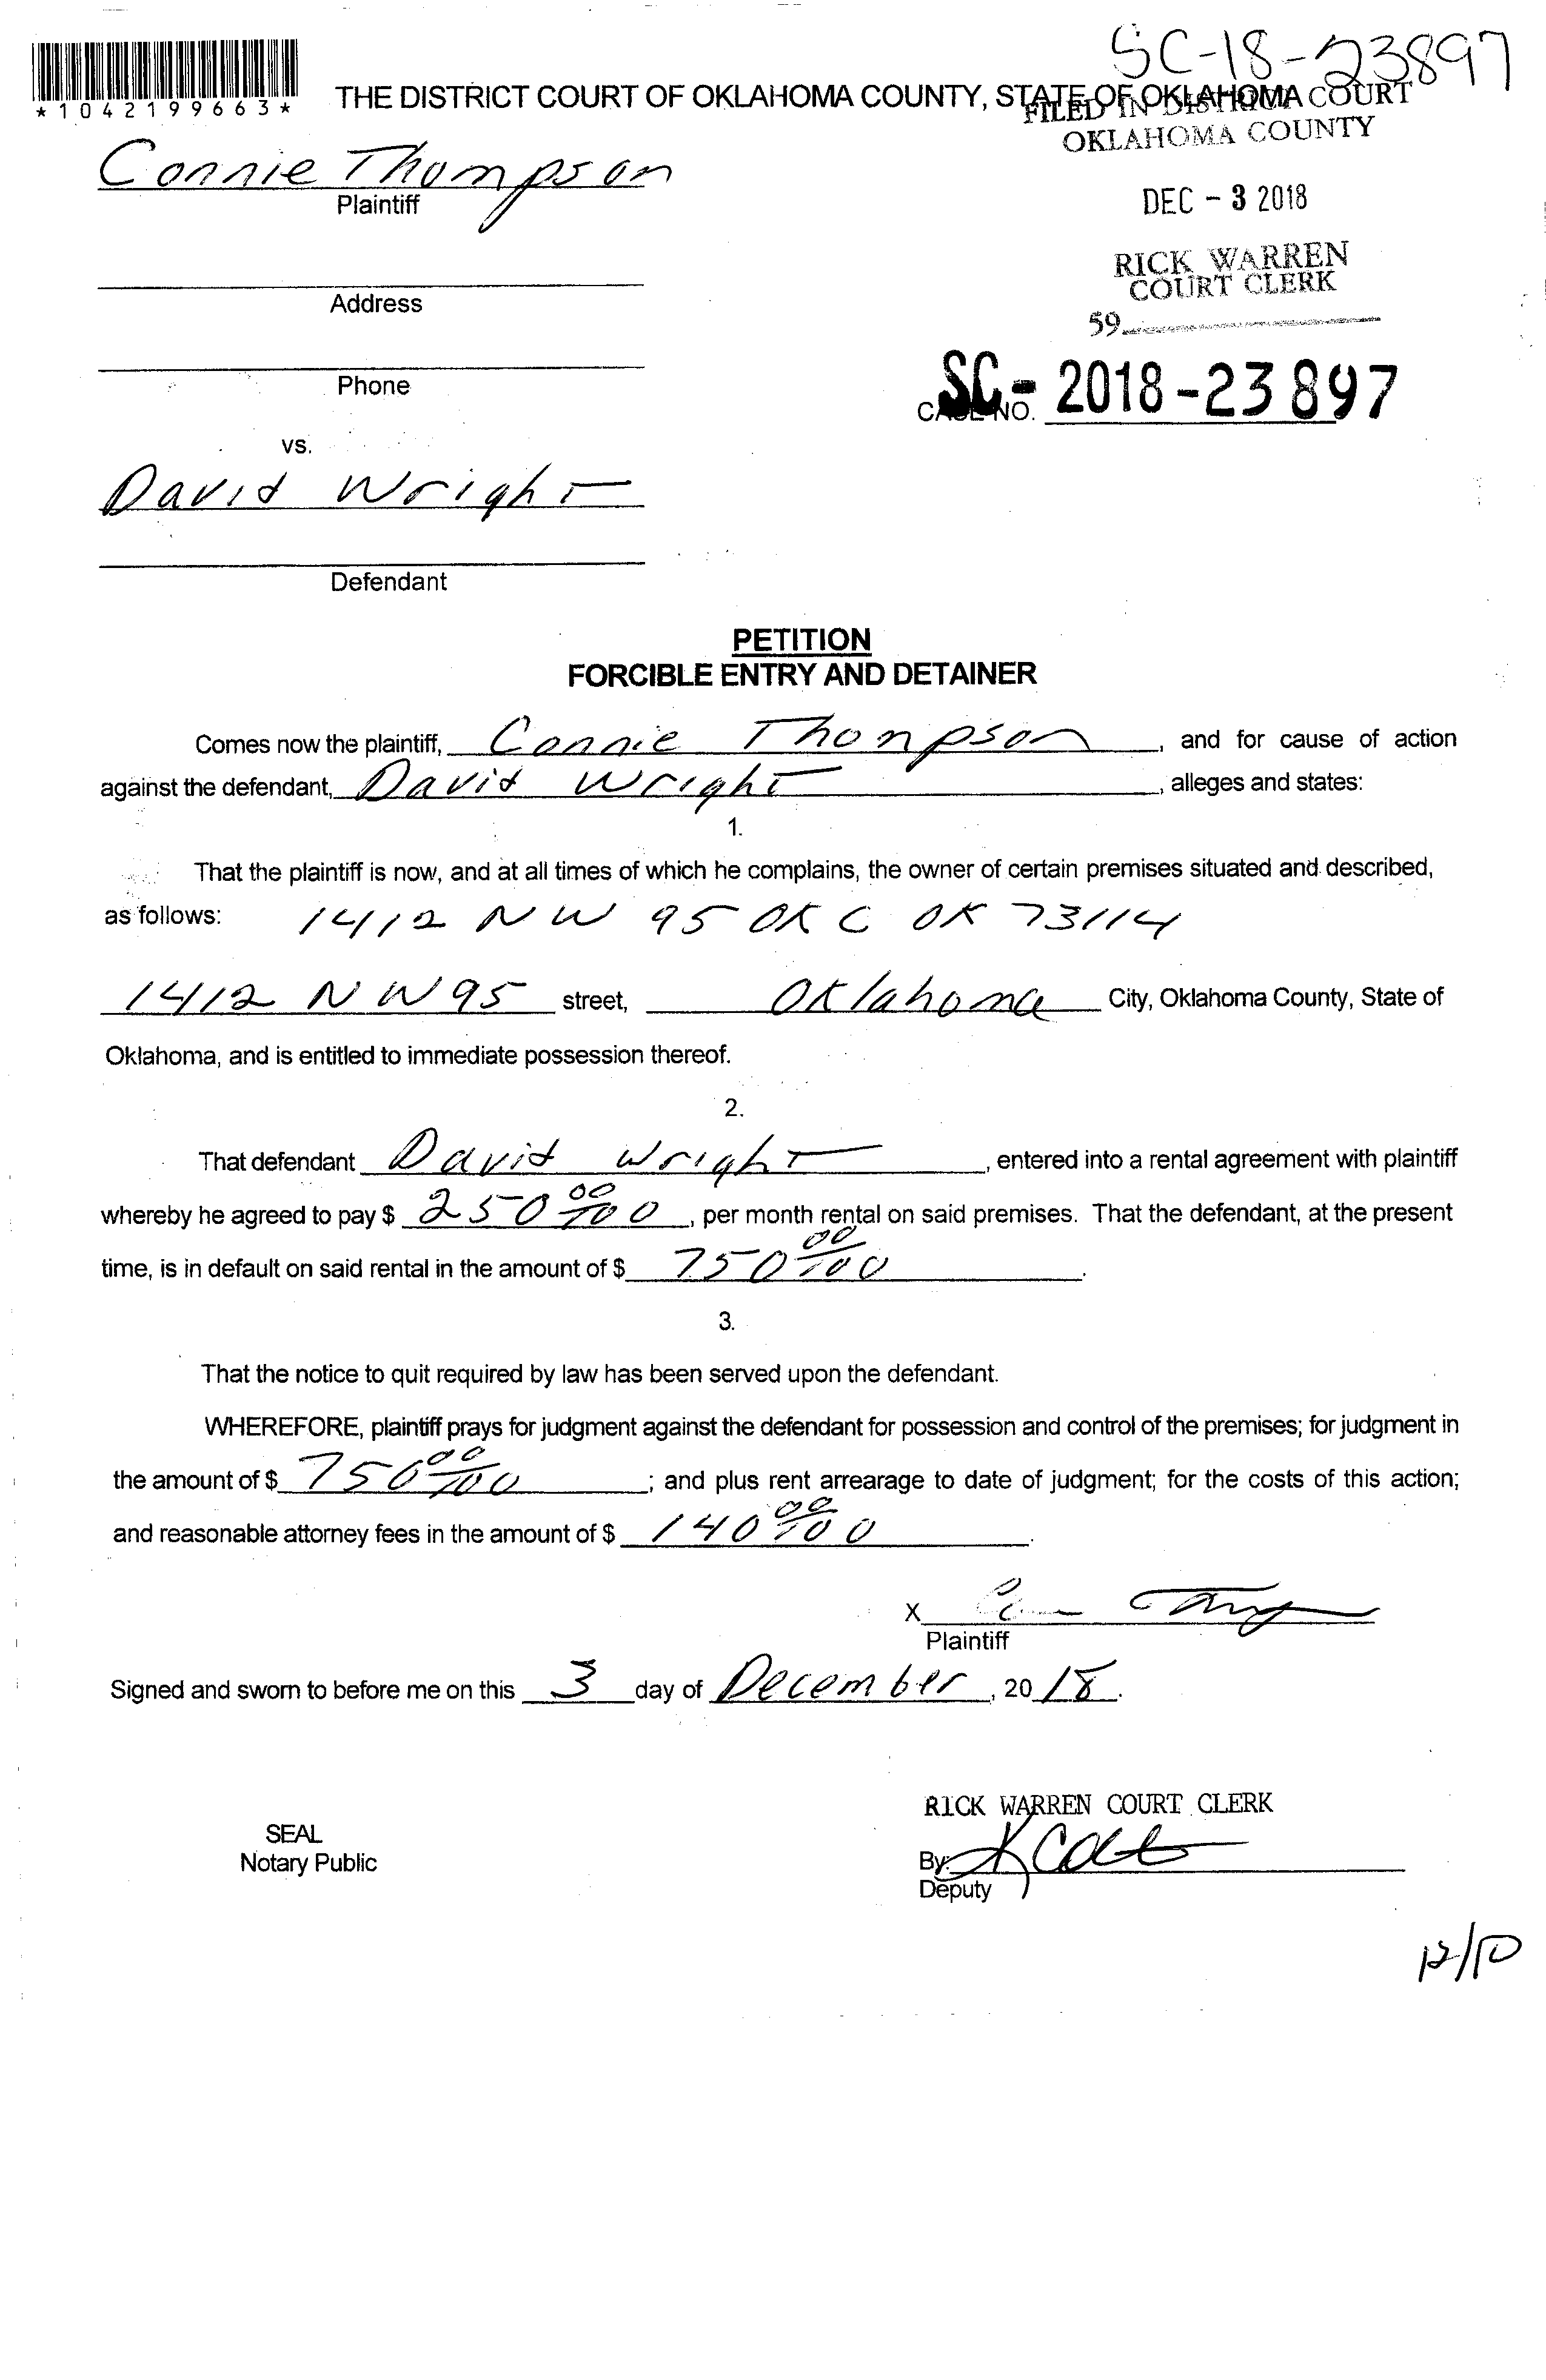 SC-18-23897
*1042199663*
THE DISTRICT COURT OF OKLAHOMA COUNTY, STATE OF OKLAHOMA
FILED IN DISTRICT COURT
OKLAHOMA COUNTY
Connie Thompson
Plaintiff
DEC - 3 2018
RICK WARREN
COURT CLERK
Address
59
Phone
CASE NO. SC- 2018-23897
vs.
David Wright
Defendant
PETITION
FORCIBLE ENTRY AND DETAINER
Comes now the plaintiff, Connie Thonpson, and for cause of action
against the defendant, David Wright, alleges and states:
1.
That the plaintiff is now, and at all times of which he complains, the owner of certain premises situated and described,
as follows: 1412 NW 95 OKC OK 73114
1412 NW 95 street, Oklahoma City, Oklahoma County, State of
Oklahoma, and is entitled to immediate possession thereof.
2.
That defendant David Wright, entered into a rental agreement with plaintiff
whereby he agreed to pay $ 250 00/100, per month rental on said premises. That the defendant, at the present
time, is in default on said rental in the amount of $ 750 00/100.
3.
That the notice to quit required by law has been served upon the defendant.
WHEREFORE, plaintiff prays for judgment against the defendant for possession and control of the premises; for judgment in
the amount of $ 750 00/100; and plus rent arrearage to date of judgment; for the costs of this action;
and reasonable attorney fees in the amount of $ 140 00/100.
X
Plaintiff
Signed and sworn to before me on this 3 day of December, 2018.
RICK WARREN COURT CLERK
SEAL
Notary Public
By:
Deputy
12/10